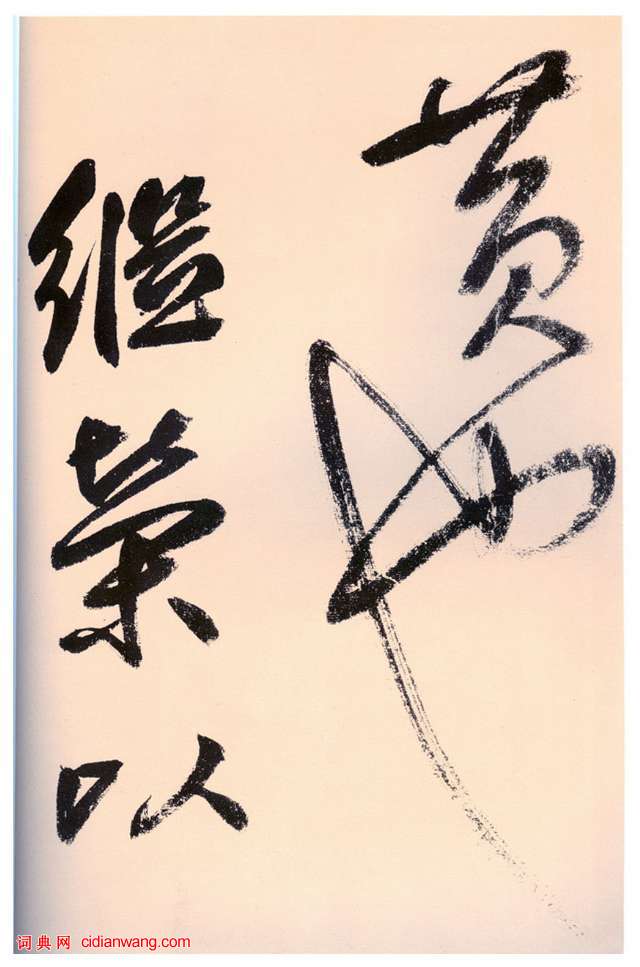 黄
繼榮以
词典网 cidianwang.com